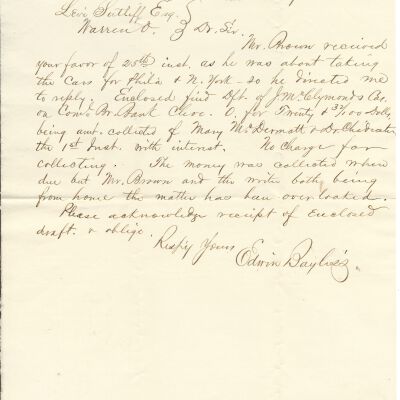 Levi Sutliff Esq.
Warren O. Dr. Sir.
Mr. Brown received
your favor of 25th inst. as he was about taking
the Cars for Phil'a & N. York - so he directed me
to reply. Enclosed find Dft. of J McClymonds Cas.
on Com'l Br. Bank Cleve. O. for Twenty & 32/100 Dolls,
being amt. collected of Mary McDermatt & Dr
the 1st Inst. with interest. No charge for
collecting. The money was collected when
due but Mr. Brown and the writer both being
from home the matter has been overlooked.
Please acknowledge receipt of enclosed
draft. & oblige.
Resp'y Yours
Edwin Bayliss